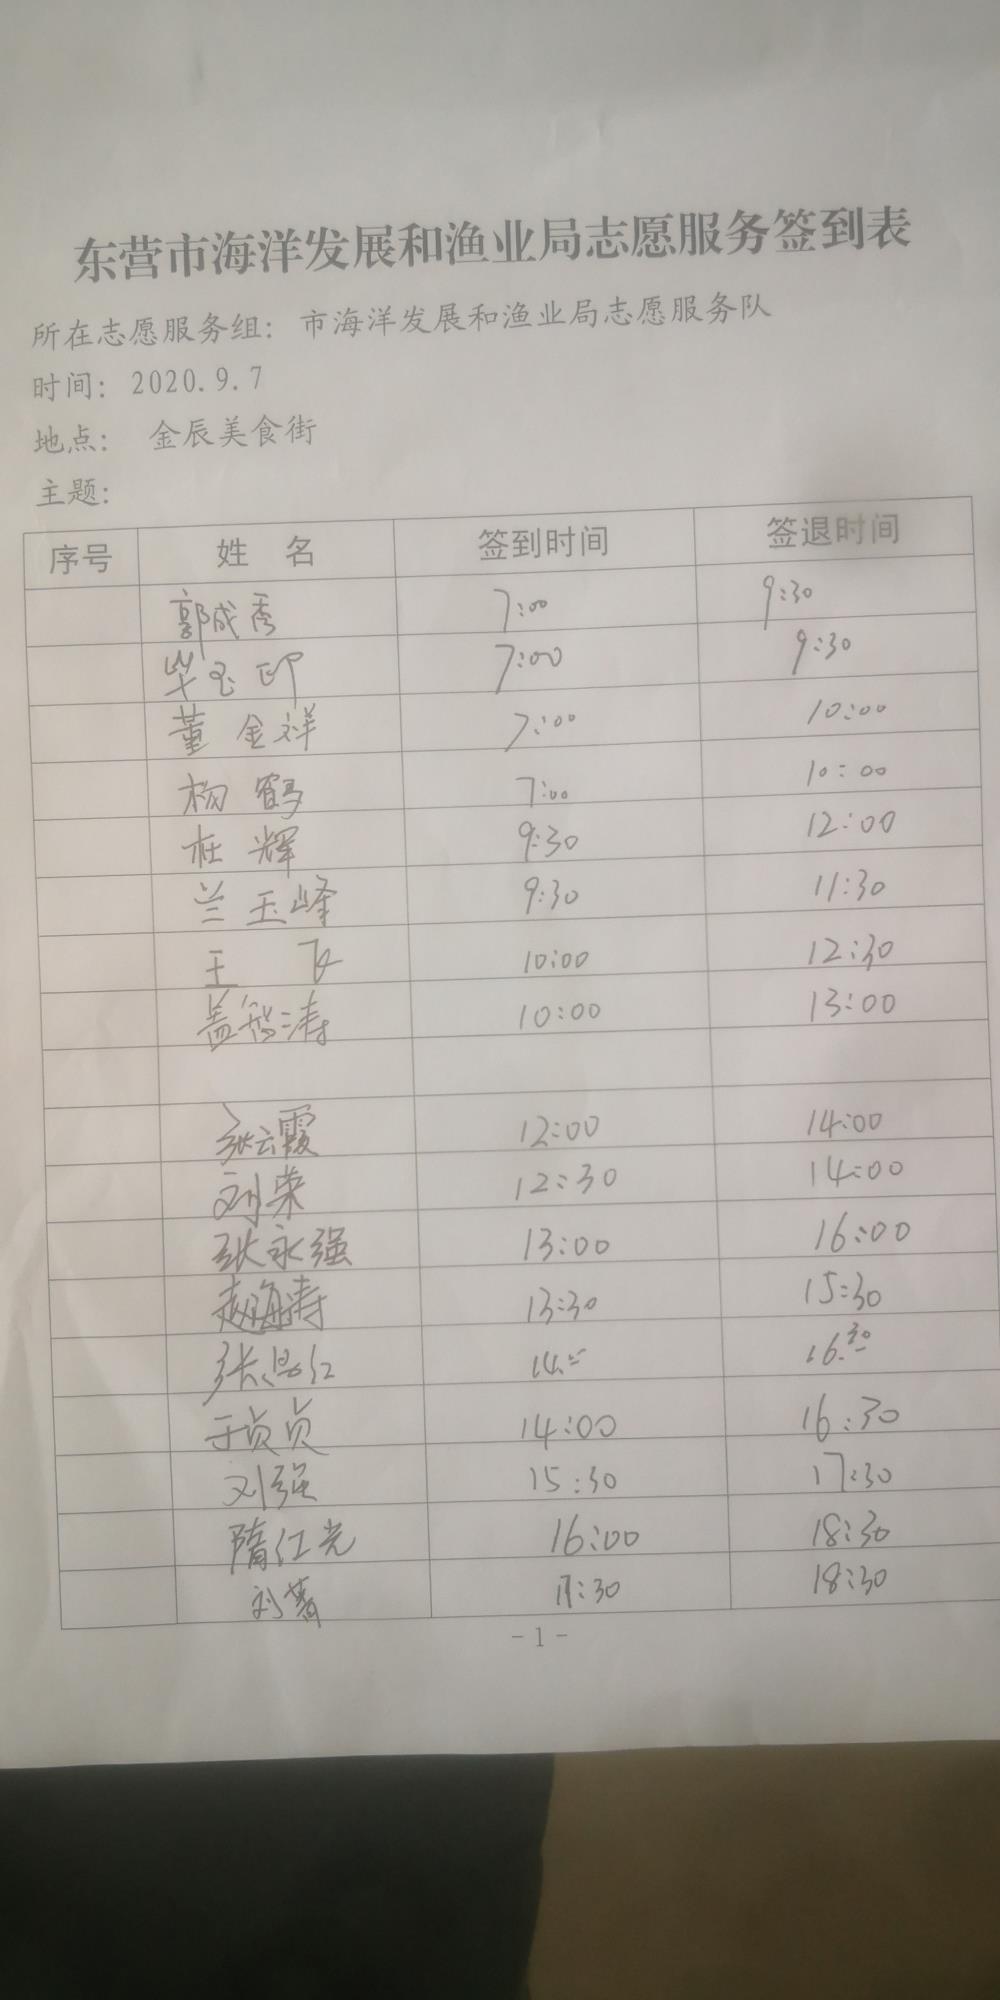 东营市海洋发展和渔业局志愿服务签到表
所在志愿服务组：市海洋发展和渔业局志愿服务队
时间：2020.9.7
地点： 金辰美食街
主题：
序号 姓 名 签到时间 签退时间
郭成秀 7:00 9:30
毕玉印 7:00 9:30
董金祥 7:00 10:00
杨鹤 7:00 10:00
杜辉 9:30 12:00
兰玉峰 9:30 11:30
王飞 10:00 12:30
盖 涛 10:00 13:00
张云霞 12:00 14:00
刘荣 12:30 14:00
张永强 13:00 16:00
赵海涛 13:30 15:30
张 红 14:00 16:30
于贞贞 14:00 16:30
刘强 15:30 17:30
隋红光 16:00 18:30
刘菁 17:30 18:30
- 1 -